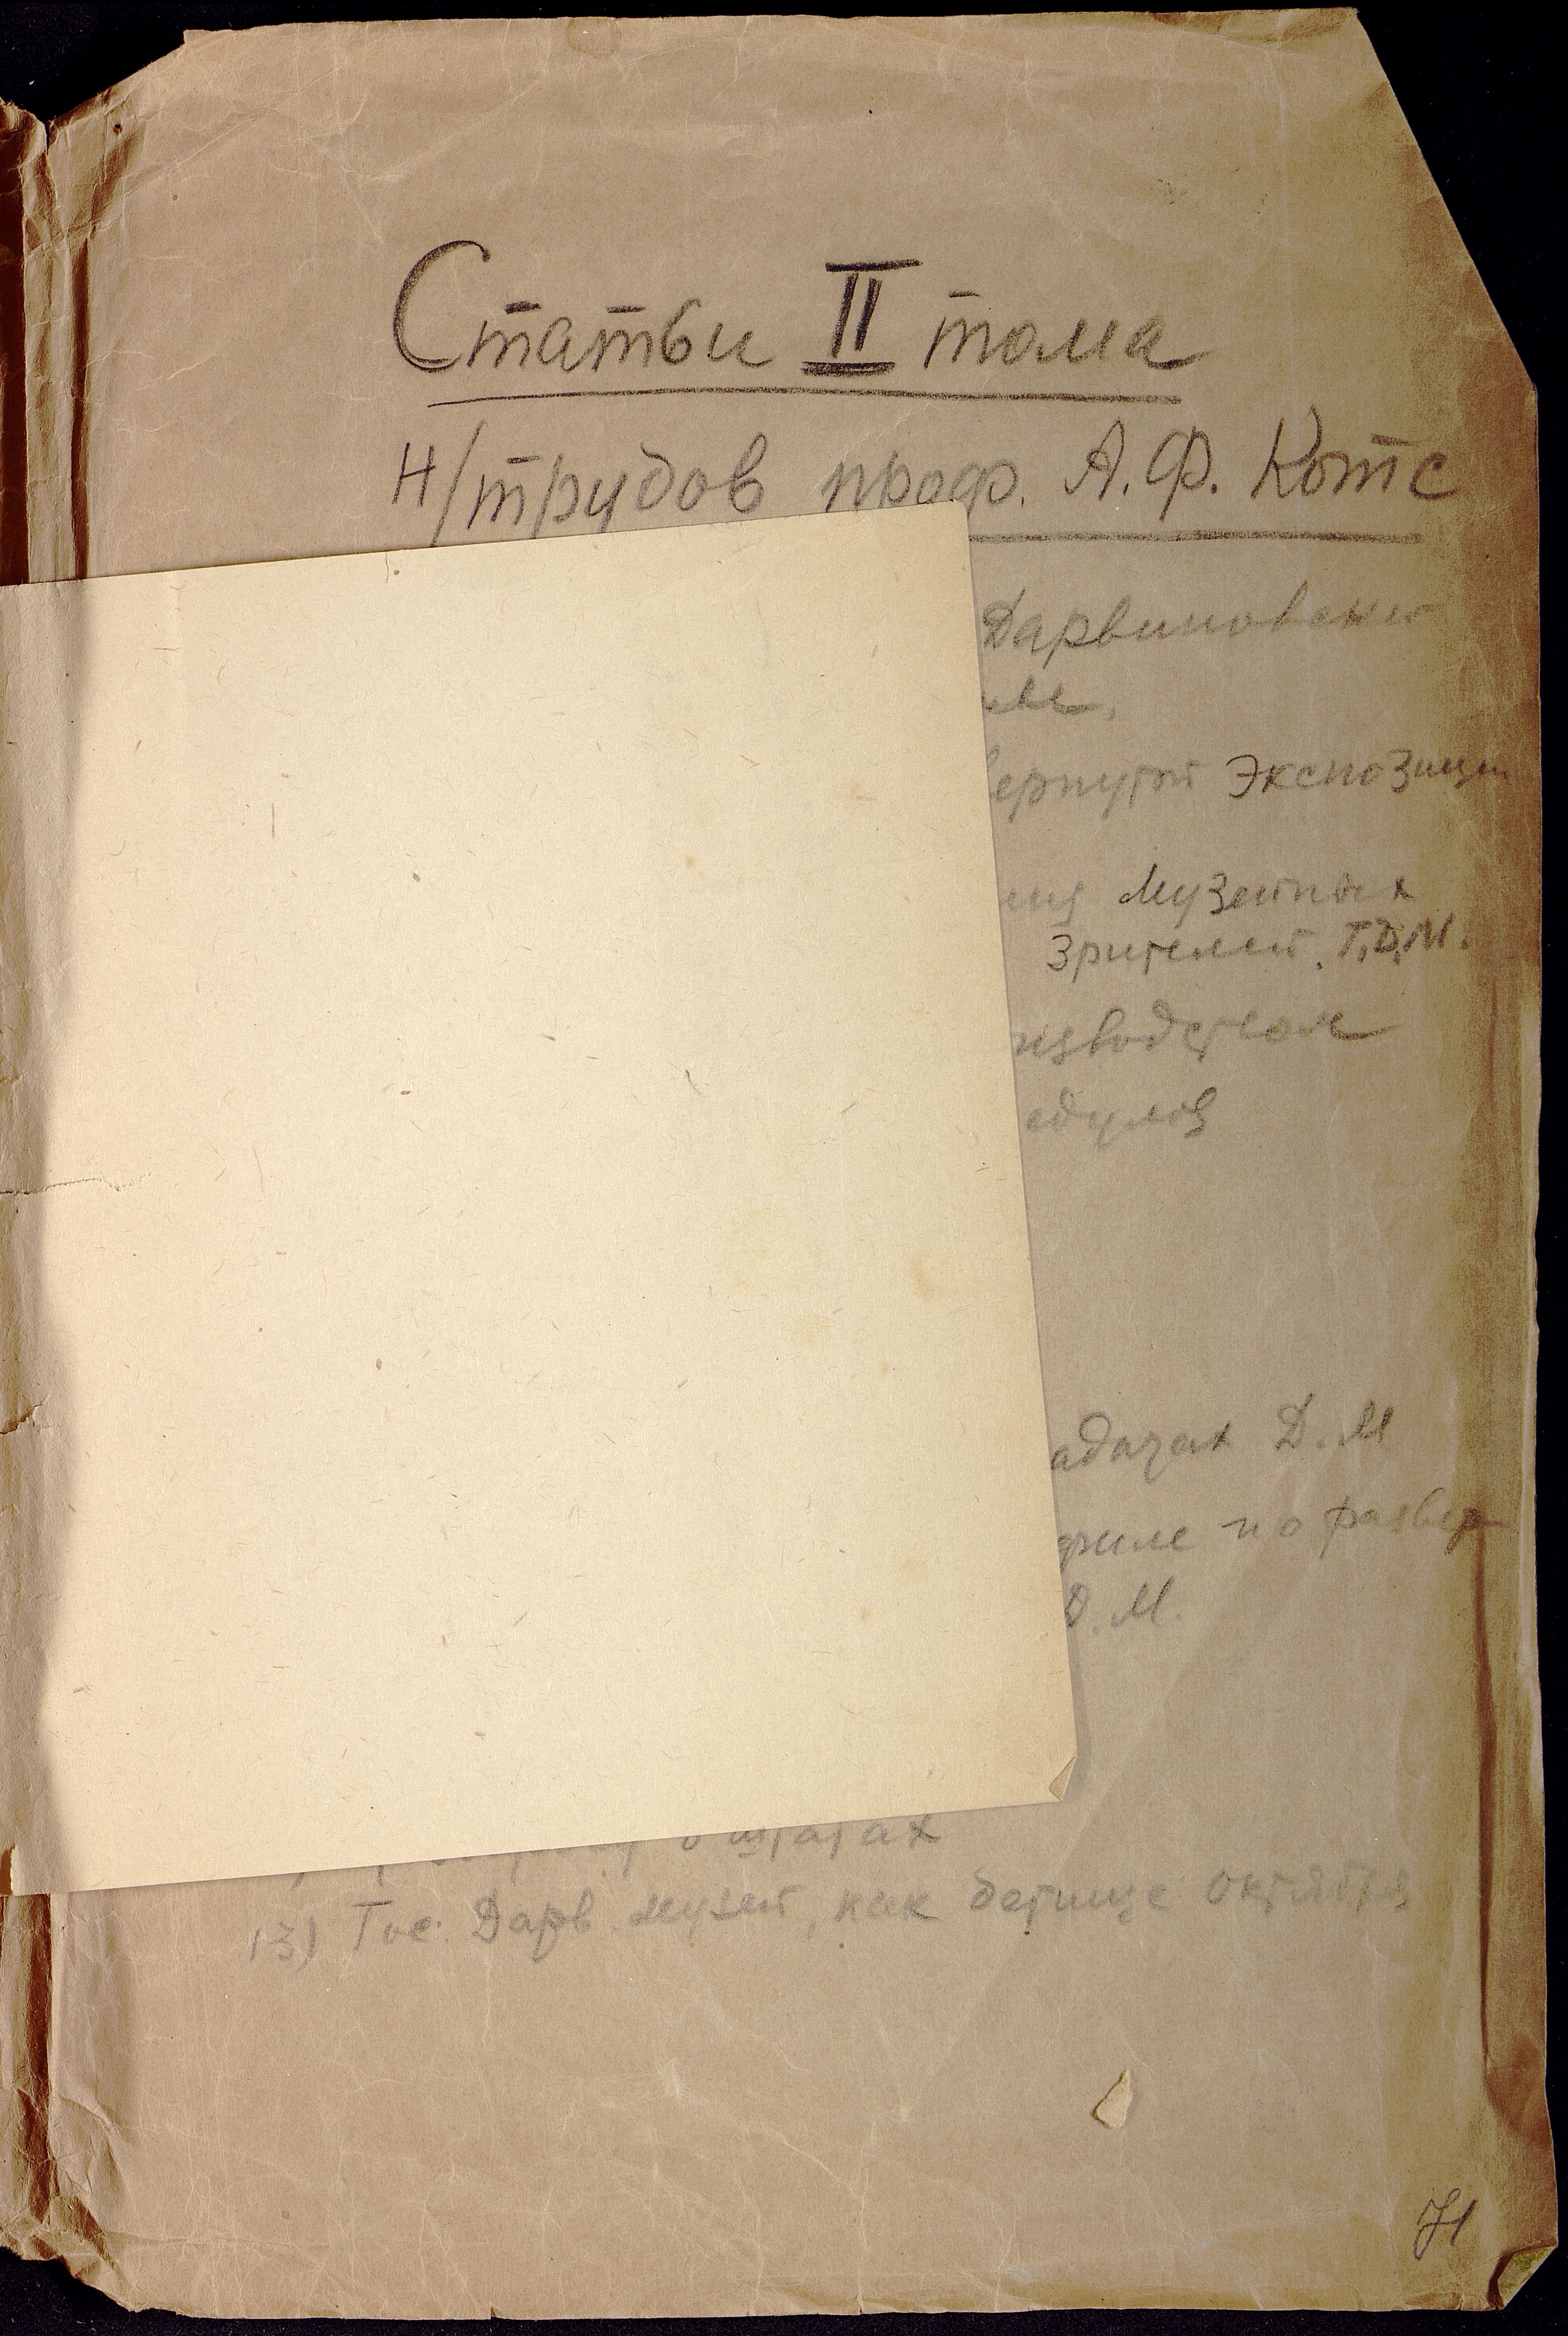 Статьи II тома
Н/трудов проф. А.Ф. Котс
Дарвиновский
ве,
вернутой Экспозиции
ия Музейных
Зрителей. Г.Д.М.
изводством
едулов
адачах Д.М
филе по развер
Д.М.
о штатах
13) Гос. Дарв. музей, как детище октября
71